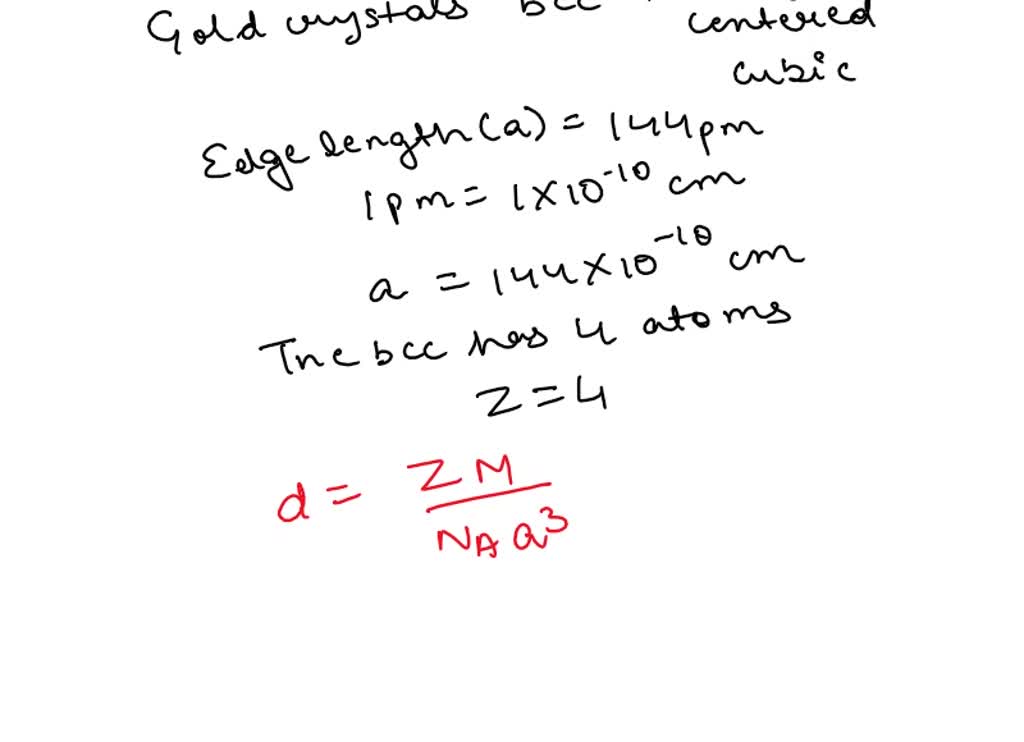 Gold crystals bcc
centered
cubic
Edge length(a) = 144pm
1pm = 1×10⁻¹⁰ cm
a = 144×10⁻¹⁰ cm
The bcc has 4 atoms
Z=4
d = ZM
NA a³